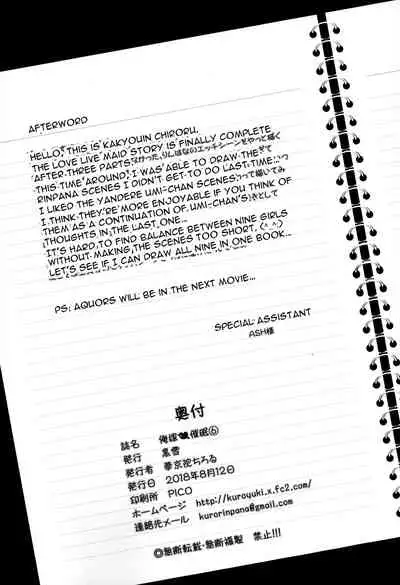 AFTERWORD
HELLO! THIS IS KAKYOUIN CHIRORU.
THE LOVE LIVE MAID STORY IS FINALLY COMPLETE
AFTER THREE PARTS.
THIS TIME AROUND, I WAS ABLE TO DRAW THE
RINPANA SCENES I DIDN'T GET TO DO LAST TIME.
I LIKED THE YANDERE UMI-CHAN SCENES.
I THINK THEY'RE MORE ENJOYABLE IF YOU THINK OF
THEM AS A CONTINUATION OF UMI-CHAN'S
THOUGHTS IN THE LAST ONE...
IT'S HARD TO FIND BALANCE BETWEEN NINE GIRLS
WITHOUT MAKING THE SCENES TOO SHORT. (^_^)
LET'S SEE IF I CAN DRAW ALL NINE IN ONE BOOK...
PS: AQUORS WILL BE IN THE NEXT MOVIE...
SPECIAL ASSISTANT
ASH様
奥付
誌名 俺嫁催眠⑥
発行 黒雪
発行者 華京院ちろる
発行日 2018年8月12日
印刷所 PICO
ホームページ http://kuroyuki.x.fc2.com/
連絡先メール kurorinpana@gmail.com
◎無断転載・無断複製 禁止!!!